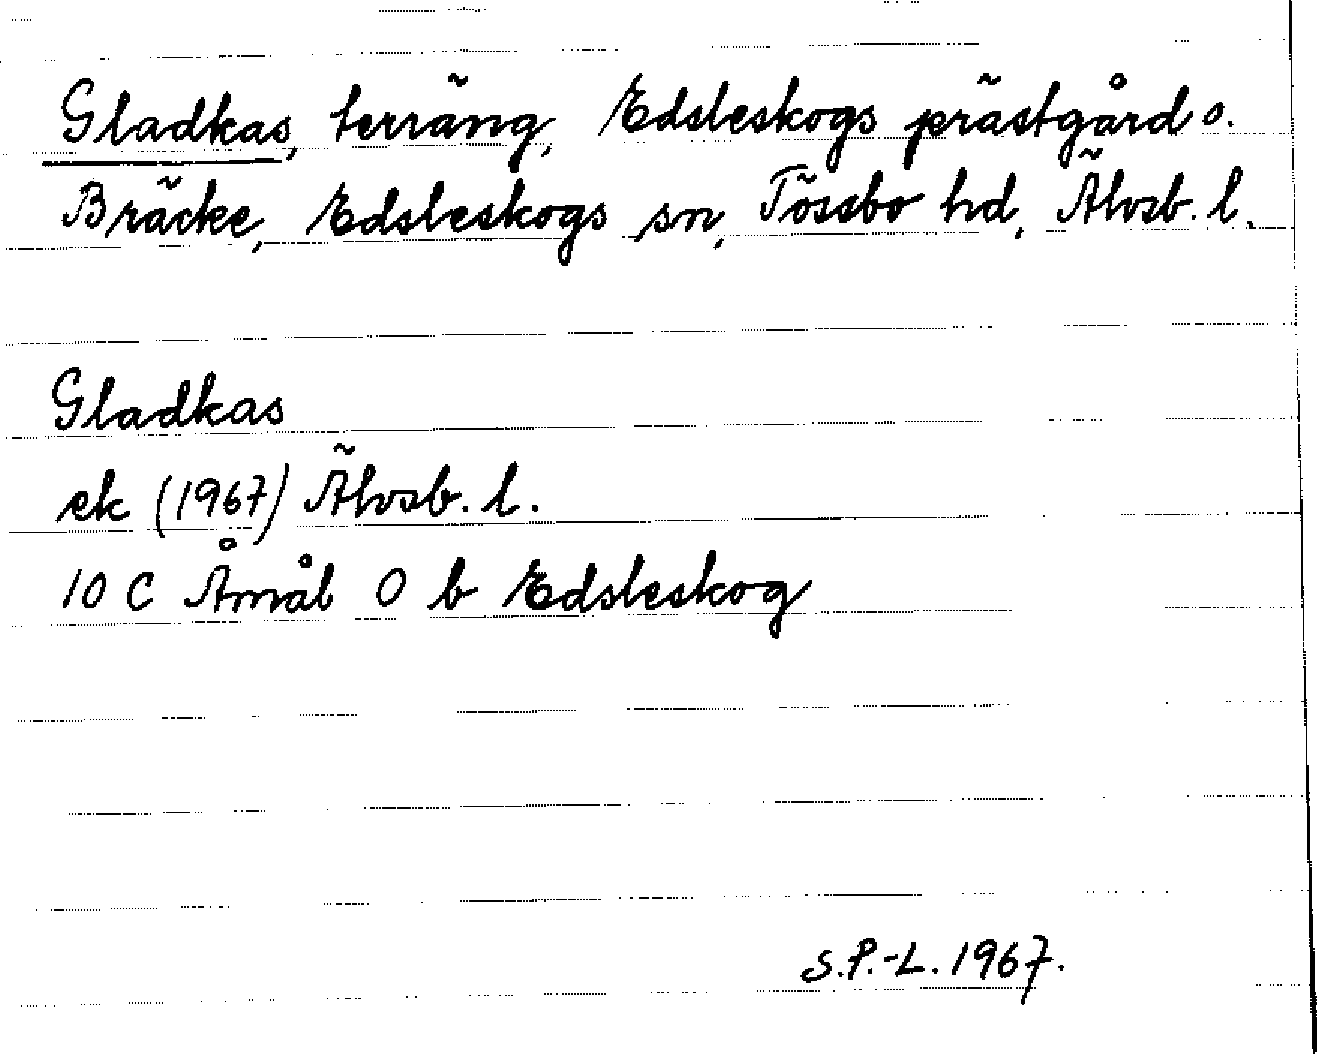 Gladkas, terräng, Edsleskogs prästgård o.
Bräcke, Edsleskogs sn, Tössbo hd, Älvsb. l.
Gladkas
ek (1967) Älvsb. l.
10 C Åmål 0 b Edsleskog
S.P.-L. 1967.